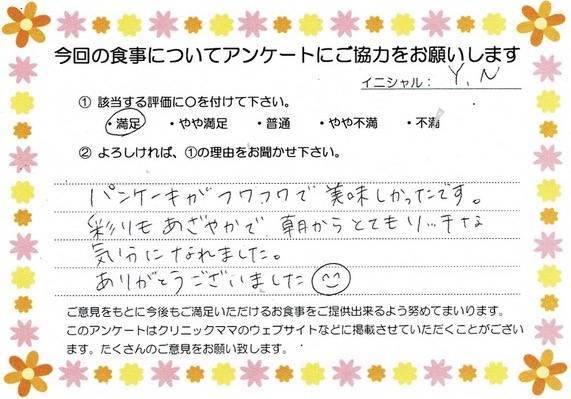 今回の食事についてアンケートにご協力をお願いします
イニシャル： Y.N
① 該当する評価に○を付けて下さい。
・満足 ・やや満足 ・普通 ・やや不満 ・不満
② よろしければ、①の理由をお聞かせ下さい。
パンケーキがフワフワで美味しかったです。
彩りもあざやかで朝からとてもリッチな
気分になれました。
ありがとうございました
ご意見をもとに今後もご満足いただけるお食事をご提供出来るよう努めてまいります。
このアンケートはクリニックママのウェブサイトなどに掲載させていただくことがござい
ます。たくさんのご意見をお願い致します。